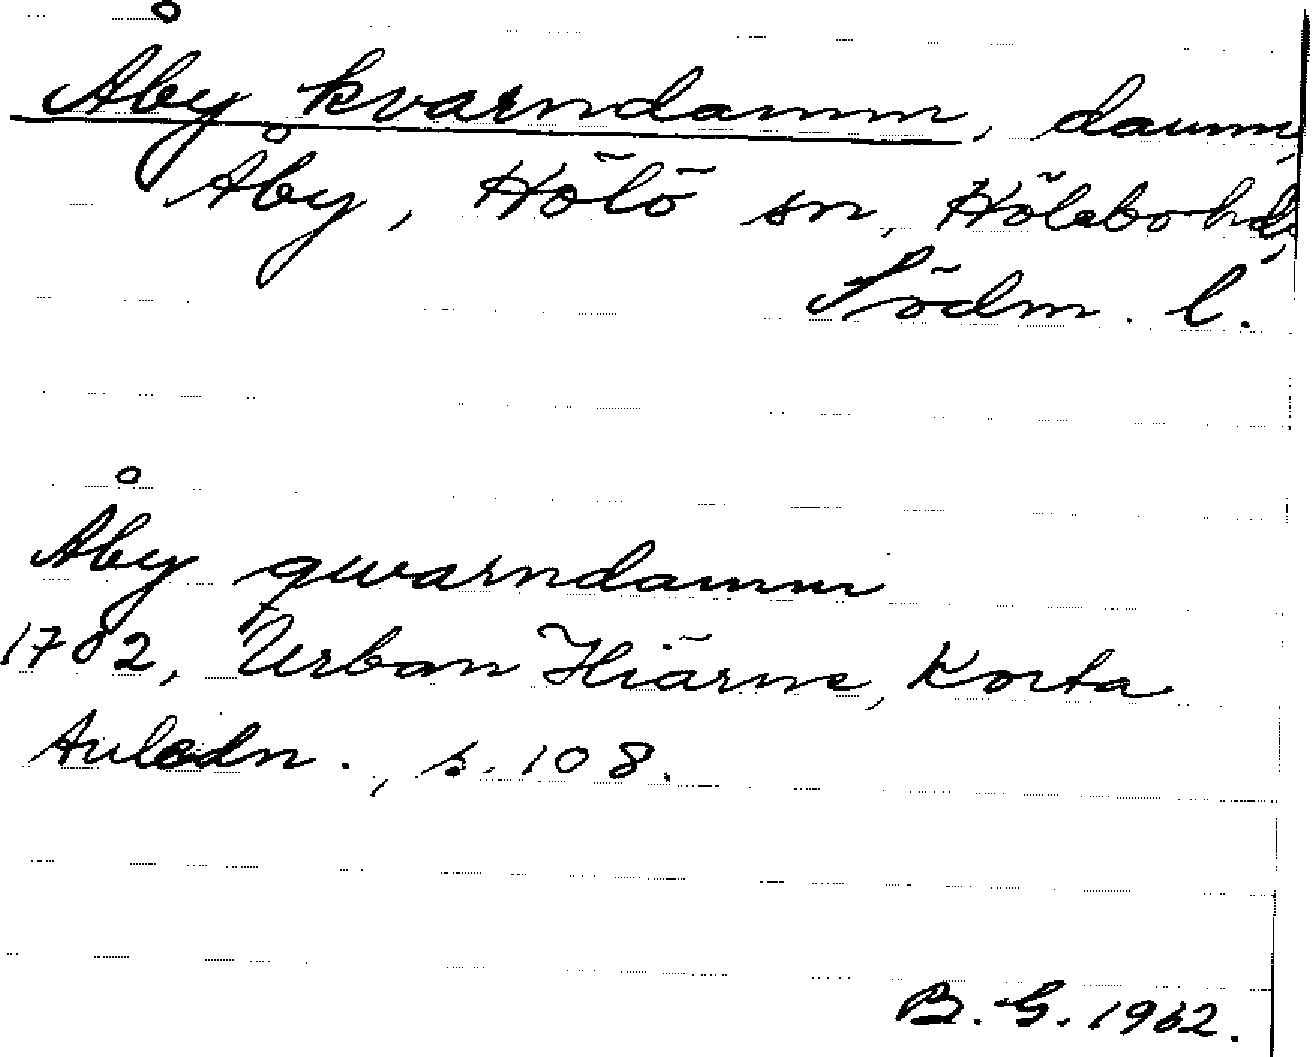 Åby kvarndamm, damm
Åby, Hölö sn, Hölebo hd,
Södm. l.
Åby qwarndamm
1702, Urban Hiärne, Korta
Anledn., s. 108.
B. G. 1962.